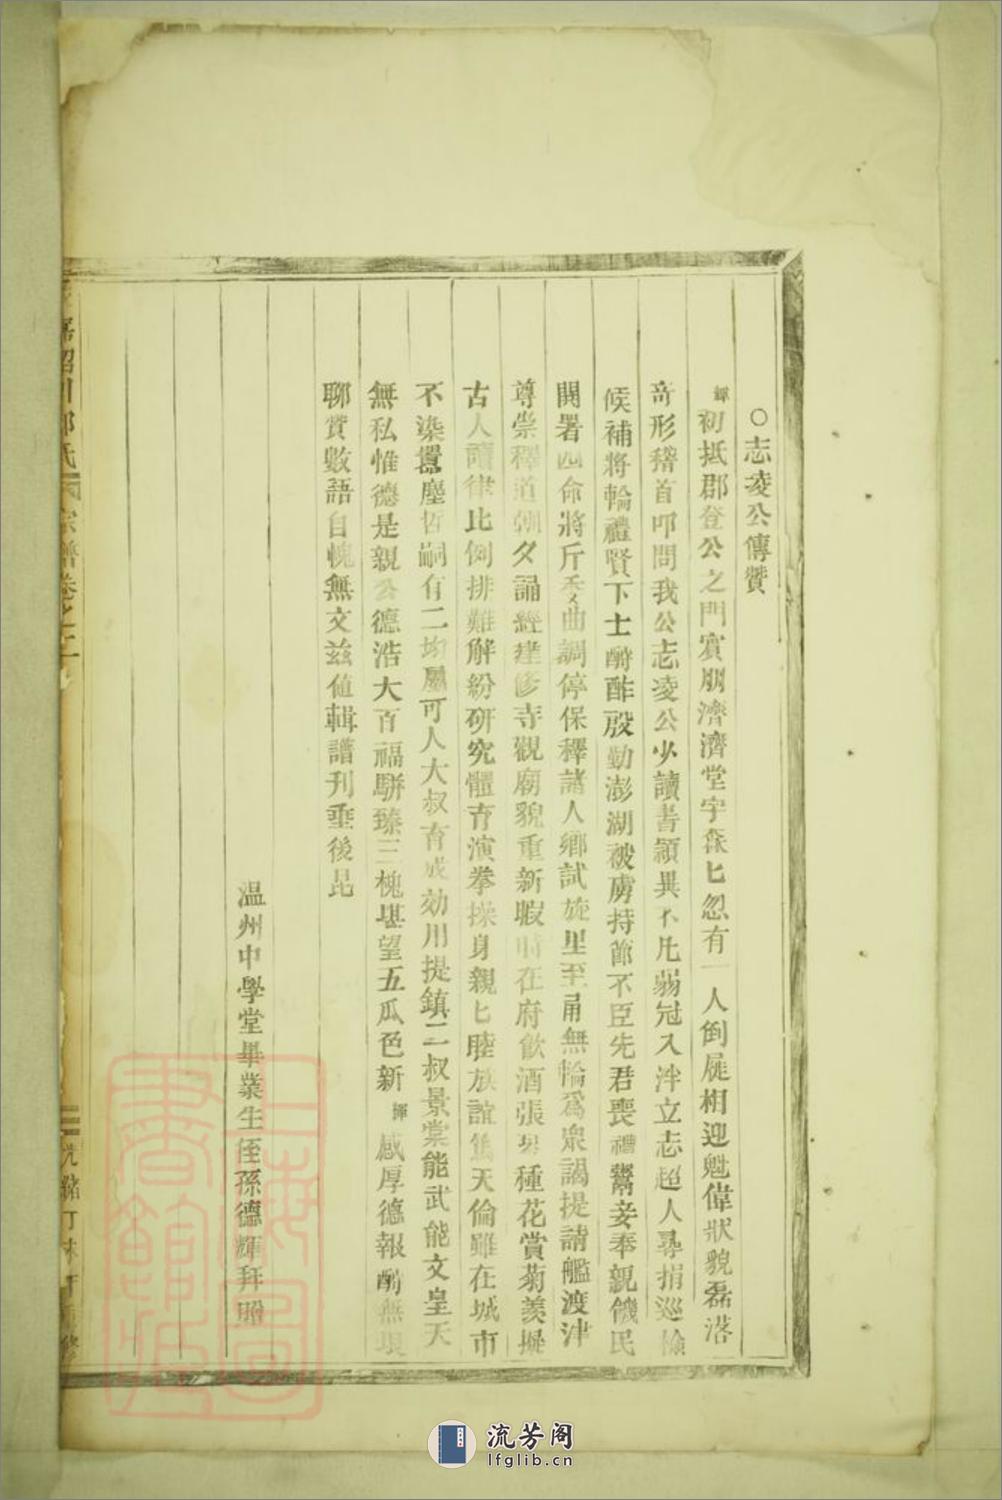 ○志凌公傳贊
輝初抵郡登公之門賓朋濟濟堂宇森匕忽有一人倒屣相迎魁偉狀貌磊落
奇形稽首叩問我公志凌公少讀書頴異不凡弱冠入泮立志超人尋捐巡檢
候補將輪禮賢下士酧酢殷勤澎湖被虜持節不臣先君喪禮鬻妾奉親饑民
鬧署四命將斤委曲調停保釋諸人鄉試旋里至甬無輪爲衆謁提請艦渡津
尊崇釋道朝夕誦經建修寺觀廟貌重新暇時在府飲酒張琴種花賞菊羨擬
古人讀律比例排難解紛研究體育演拳操身親匕睦族誼篤天倫雖在城市
不染囂塵哲嗣有二均屬可人大叔育成効用提鎮二叔景棠能武能文皇天
無私惟德是親公德浩大百福駢臻三槐堪望五瓜色新輝感厚德報酧無垠
聊贊數語自愧無文兹値輯譜刊垂後昆
温州中學堂畢業生侄孫德輝拜贈
氏宗譜卷之二
光緒丁未
上海圖書館藏
流芳阁
lfglib.cn